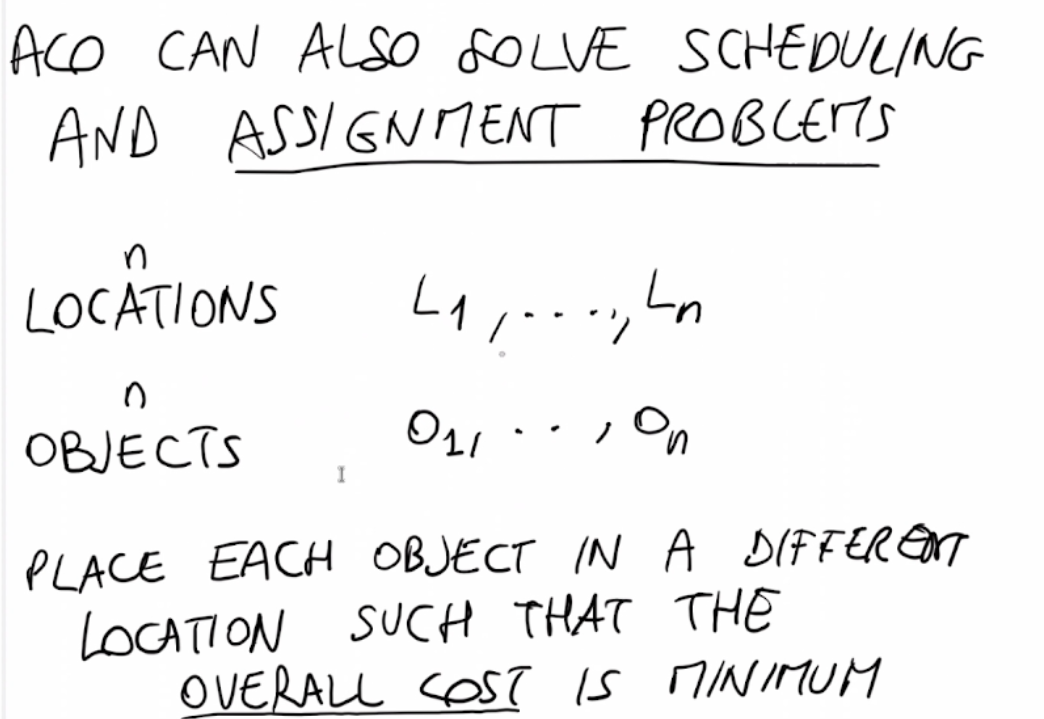 ACO CAN ALSO SOLVE SCHEDULING
AND ASSIGNMENT PROBLEMS
n
LOCATIONS L1,....,Ln
n
OBJECTS O1,..,On
PLACE EACH OBJECT IN A DIFFERENT
LOCATION SUCH THAT THE
OVERALL COST IS MINIMUM